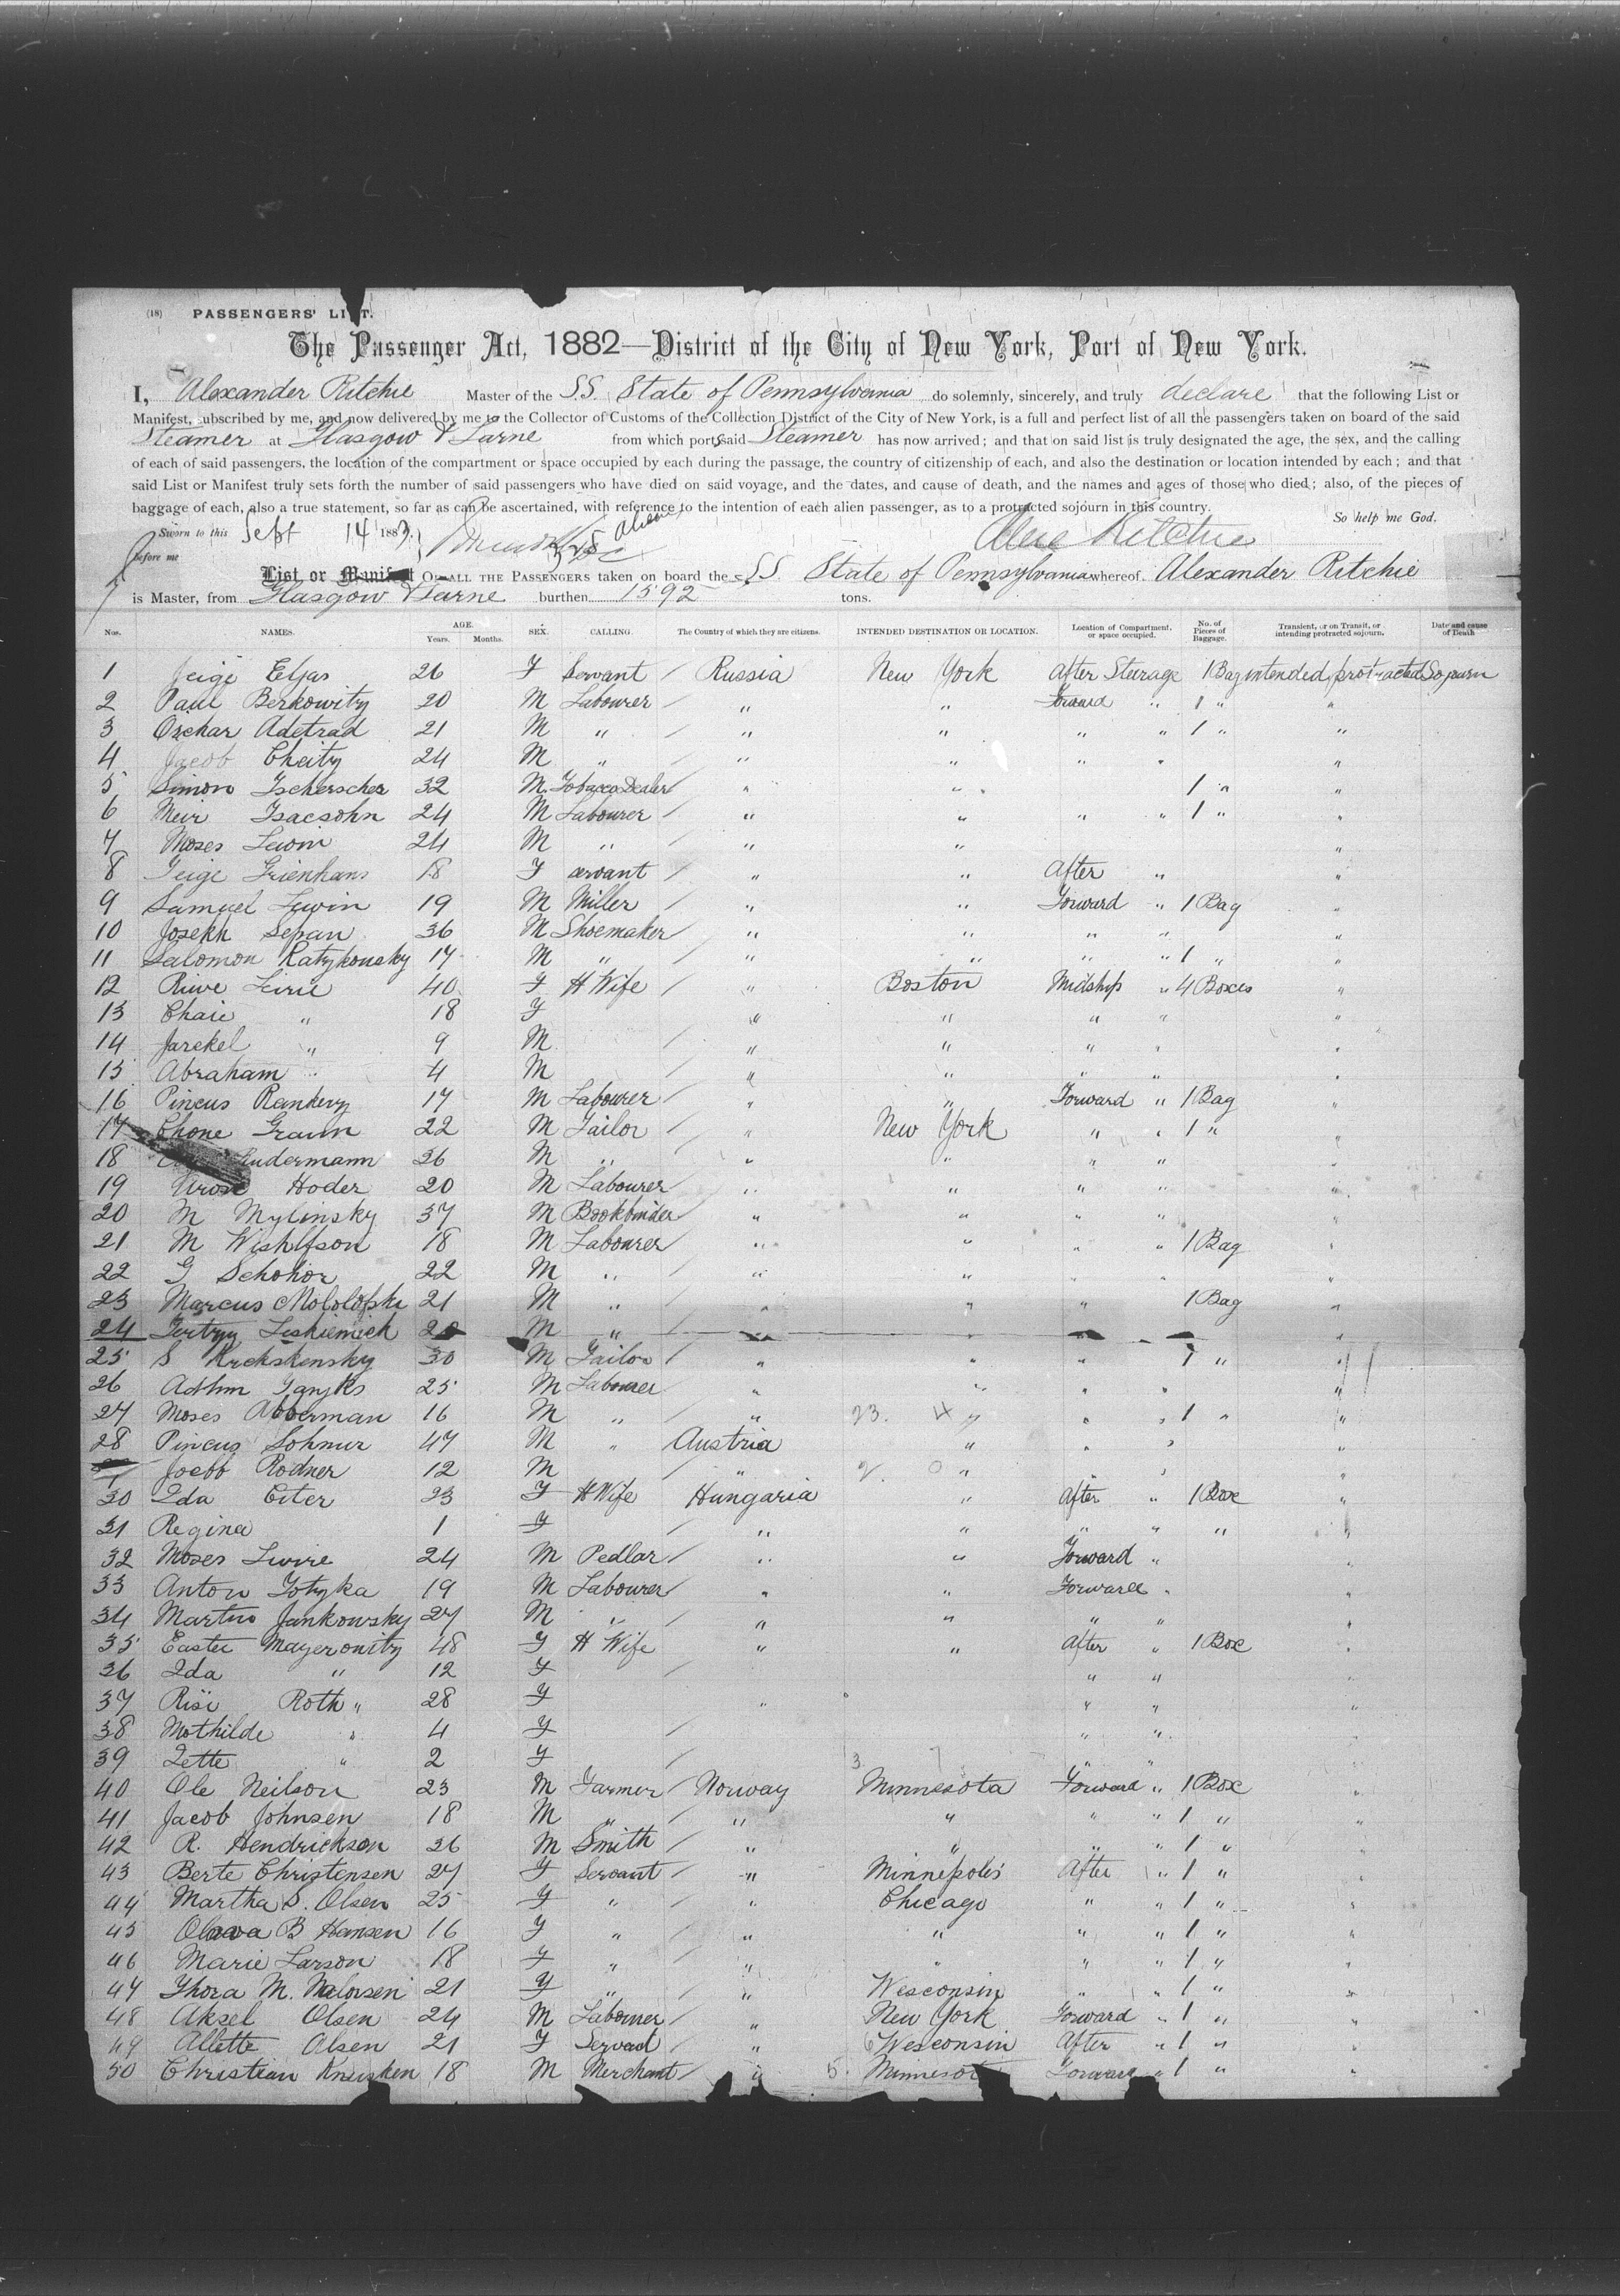 (18) PASSENGERS' LIST.
The Passenger Act, 1882—District of the City of New York, Port of New York.
I, Alexander Ritchie Master of the SS. State of Pennsylvania do solemnly, sincerely, and truly declare that the following List or
Manifest, subscribed by me, and now delivered by me to the Collector of Customs of the Collection District of the City of New York, is a full and perfect list of all the passengers taken on board of the said
Steamer at Glasgow & Larne from which ports said Steamer has now arrived; and that on said list is truly designated the age, the sex, and the calling
of each of said passengers, the location of the compartment or space occupied by each during the passage, the country of citizenship of each, and also the destination or location intended by each; and that
said List or Manifest truly sets forth the number of said passengers who have died on said voyage, and the dates, and cause of death, and the names and ages of those who died; also, of the pieces of
baggage of each, also a true statement, so far as can be ascertained, with reference to the intention of each alien passenger, as to a protracted sojourn in this country. So help me God.
Sworn to this Sept 14 1883. Alex Ritchie
before me
List or Manifest OF ALL THE PASSENGERS taken on board the SS State of Pennsylvania whereof Alexander Ritchie
is Master, from Glasgow & Larne burthen 1592 tons.
Nos. NAMES. AGE. Years. Months. SEX. CALLING. The Country of which they are citizens. INTENDED DESTINATION OR LOCATION. Location of Compartment, or space occupied. No. of Pieces of Baggage. Transient, or on Transit, or intending protracted sojourn. Date and cause of Death
1 Feige Eljas 26 F Servant Russia New York After Steerage 1 Bag intended protracted Sojourn
2 Paul Berkowitz 20 M Labourer " " Forward " 1 " "
3 Oschar Adetrad 21 M " " " " " 1 " "
4 Jacob Cheitz 24 M " " " " " "
5 Simon Ischerscher 32 M Tobacco Dealer " " 1 " "
6 Meir Isacsohn 24 M Labourer " " " " 1 " "
7 Moses Lewin 24 M " " " "
8 Feige Grienhans 18 F ervant " " After " "
9 Samuel Lewin 19 M Miller " " Forward " 1 Bag "
10 Joseph Sepan 36 M Shoemaker " " " " "
11 Salomon Ratzkonsky 17 M " " " " " 1 " "
12 Riwe Lirie 40 F H Wife " Boston Midship " 4 Boxes "
13 Chaie " 18 F " " " " "
14 Jarekel " 9 M " " " " "
15 Abraham " 4 M " " " " "
16 Pincus Rankevz 17 M Labourer " " Forward " 1 Bag "
17 Chone Graun 22 M Tailor " New York " " 1 " "
18 Ludermann 36 M " " " " " "
19 Hoder 20 M Labourer " " " " "
20 M Mylinsky 37 M Bookbinder " " " " "
21 M Wishlfson 18 M Labourer " " " " 1 Bag "
22 G Schohor 22 M " " " " " "
23 Marcus Mololofski 21 M " " " " 1 Bag "
24 Liskiemich M " " " "
25 S Krekskensky 30 M Tailor " " " 1 " "
26 Adhm 25 M Labourer " " " " "
27 Moses Abberman 16 M " " 23. 4 " " " 1 " "
28 Pincus Sohnur 47 M " Austria " " " "
Joebb Rodner 12 M " " " "
30 Ida Citer 23 F H Wife Hungaria " After " 1 Box "
31 Regina 1 F " " " " " "
32 Moses Lwire 24 M Pedlar " " Forward " "
33 Anton Totyka 19 M Labourer " " Forward " "
34 Martin Jankowsky 27 M " " " " " "
35 Easter Mayerowitz 48 F H Wife " " After " 1 Box "
36 Ida " 12 F " " "
37 Risi Roth " 28 F " " " "
38 Mothilde " 4 F " "
39 Zette " 2 F " "
40 Ole Neilson 23 M Farmer Norway Minnesota Forward " 1 Box "
41 Jacob Johnsen 18 M " " " " " 1 " "
42 R. Hendrickson 26 M Smith " " " " 1 " "
43 Berte Christensen 27 F Servant " Minnepolis After " 1 " "
44 Martha S. Olsen 25 F " " Chicago " " 1 " "
45 Olava B Hansen 16 F " " " " " 1 " "
46 Marie Larson 18 F " " " " " 1 " "
47 Thora M. Nalorsen 21 F " " Wesconsin " " 1 " "
48 Aksel Olsen 24 M Labourer " New York Forward " 1 " "
49 Allette Olsen 21 F Servant " Wesconsin After " 1 " "
50 Christian Knusken 18 M Merchant " Minnesot Forward " 1 " "